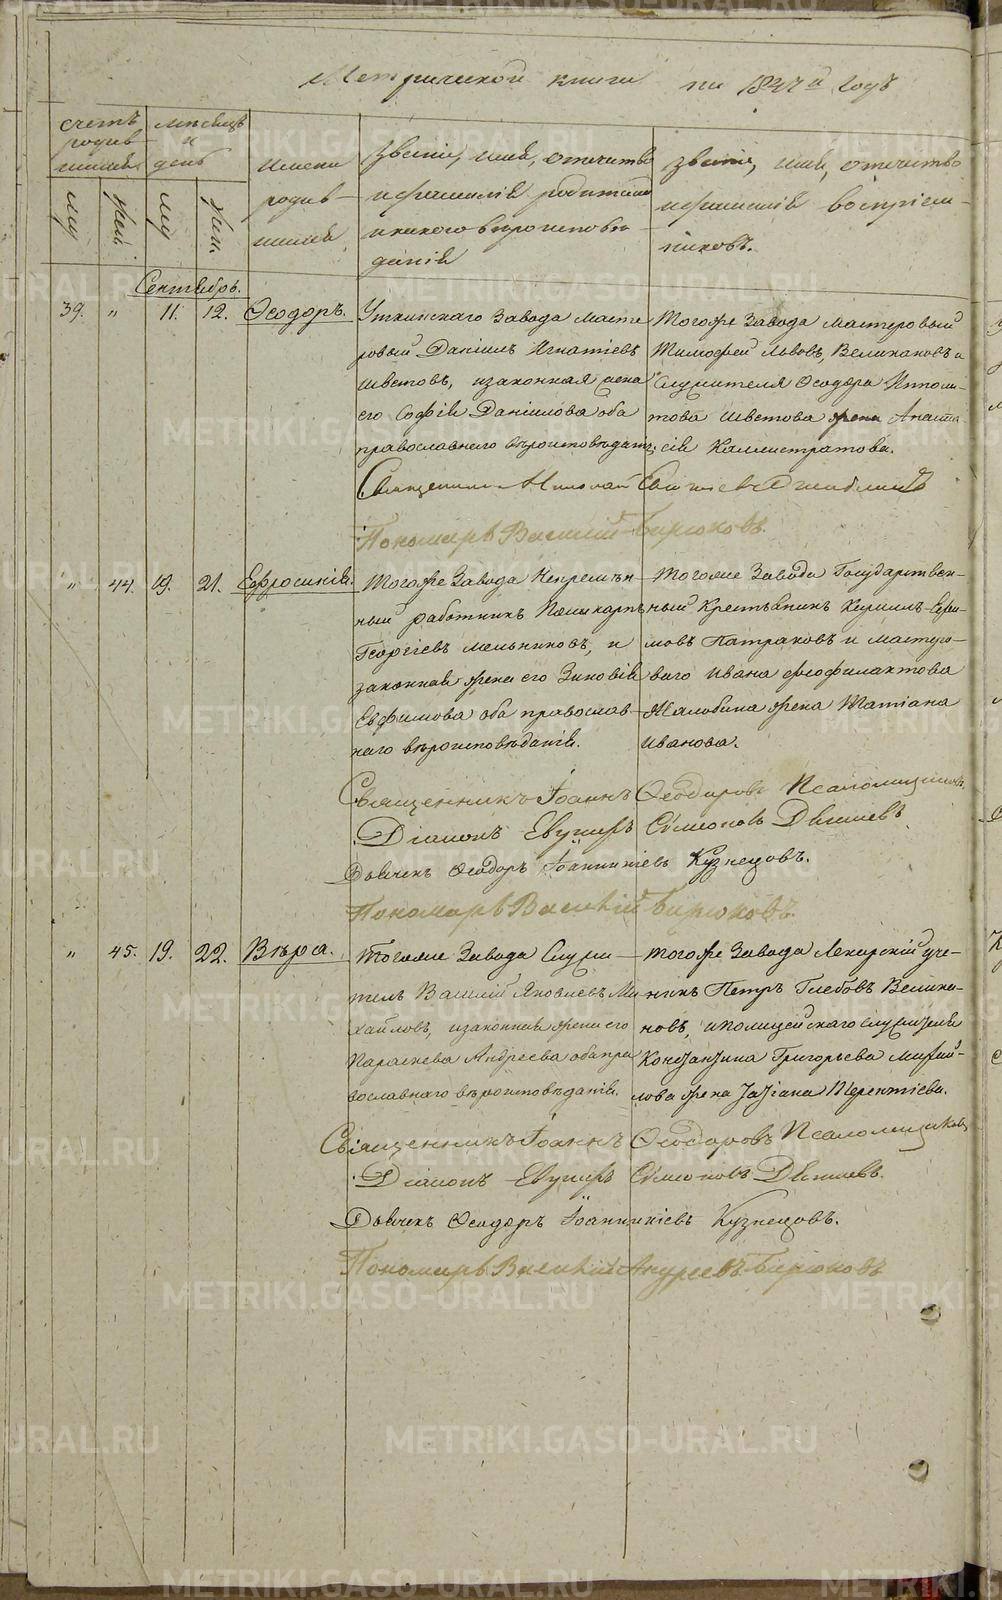 Метрической книги на 1847й Годъ
счетъ родив-шихся
мѣсяцъ и день
Имена родив-шихся
Званіе, имя, отечество и фамилія родителей и какого вѣроисповѣданія
Званіе, имя, отечество и фамилія воспріем-никовъ.
Сентябрь.
39. „ 11. 12. Ѳеодоръ.
Уткинскаго Завода Масте-
ровый Даніилъ Игнатіевъ
Шветовъ, и законная жена
его Софія Даніилова оба
православнаго вѣроисповѣданія
Тогоже Завода Мастеровый
Тимофей Львовъ Великановъ и
Служителя Ѳеодора Иппол-
това Шветова жена Анаста-
сія Каллистратова.
Священникъ Николай
Пономарь Василий Бирюковъ.
„ 44. 19. 21. Ефросинія.
Тогоже Завода Непремѣн-
ный работникъ Поликарпъ
Георгіевъ Мельниковъ, и
законная жена его Зиновія
Евфимова оба православ-
наго вѣроисповѣданія.
Тогоже Завода Государствен-
ный Крестьянинъ Кириллъ Ефи-
мовъ Патраковъ и мастеро-
ваго Ивана Феофилактова
Жалобина жена Татіана
Иванова.
Священникъ Іоаннъ Ѳеодоровъ Псаломщиковъ
Діаконъ Евгиръ Симеоновъ
Дьячекъ Ѳеодоръ Іоанникіевъ Кузнецовъ.
Пономарь Василій Бирюковъ.
„ 45. 19. 22. Вѣра.
Тогоже Завода Служи-
тель Василій Яковлевъ Ми-
хайловъ, и законная жена его
Параскева Андреева оба пра-
вославнаго вѣроисповѣданія.
тогоже Завода Лекарскій уче-
никъ Петръ Глебовъ Велика-
новъ, и полицейскаго служителя
Константина Григорьева Михай-
лова жена Татіана Терентіева.
Священникъ Іоаннъ Ѳеодоровъ Псаломщиковъ
Діаконъ Симеоновъ
Дьячекъ Ѳеодоръ Іоанникіевъ Кузнецовъ.
Пономарь Василій Андреевъ Бирюковъ
METRIKI.GASO-URAL.RU